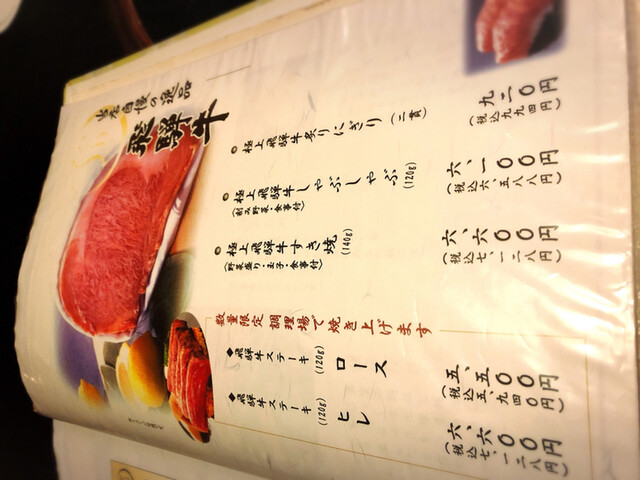 当店自慢の逸品
飛騨牛
極上飛騨牛炙りにぎり(二貫)
九二〇円
(税込九九四円)
極上飛騨牛しゃぶしゃぶ(120g)
(刻み野菜・食事付)
六、一〇〇円
(税込六、五八八円)
極上飛騨牛すき焼(140g)
(野菜盛り・玉子・食事付)
六、六〇〇円
(税込七、一二八円)
数量限定 調理場で焼き上げます
◆飛騨牛ステーキ(120g)ロース
五、五〇〇円
(税込五、九四〇円)
◆飛騨牛ステーキ(120g)ヒレ
六、六〇〇円
(税込七、一二八円)